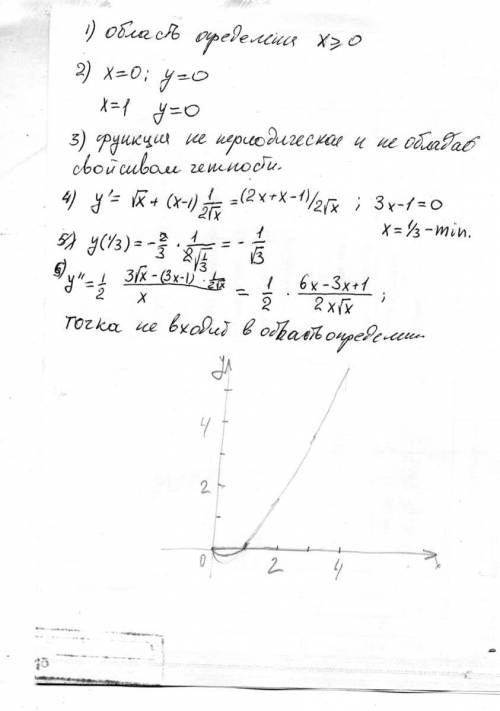 1) область определения x⩾0
2) x=0; y=0
x=1 y=0
3) функция не периодическая и не обладает
свойством четности.
4) y' = √x + (x-1) 1/2√x = (2x+x-1)/2√x ; 3x-1=0
x=1/3 - min.
5) y(1/3) = -2/3 · 1/2√1/3 = -1/√3
6) y'' = 1/2 3√x-(3x-1)·1/2√x / x = 1/2 · 6x-3x+1 / 2x√x ;
точка не входит в область определения.
y
4
2
0 2 4 x